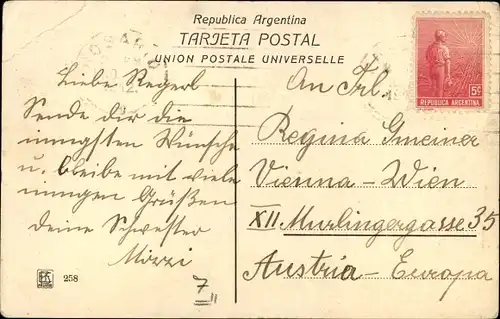 Republica Argentina
TARJETA POSTAL
UNION POSTALE UNIVERSELLE
5c
REPUBLICA ARGENTINA
Liebe Regerl
Sende dir die
innigsten Wünsche
u. bleibe mit viele
innigen Grüßen
deine Schwester
Mizzi
7
258
An Frl.
Regina Gmeiner
Vienna – Wien
XII Murlingergasse 35
Austria – Europa